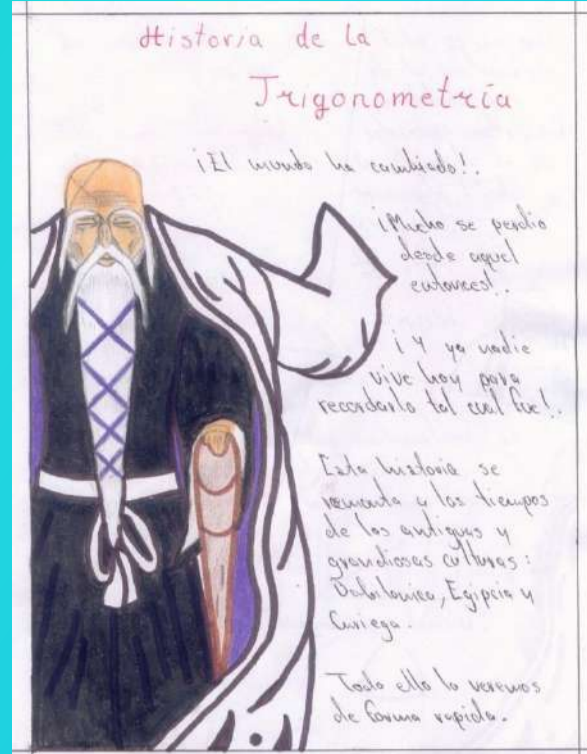 Historia de la
Trigonometría
¡El mundo ha cambiado!.
¡Mucho se perdio
desde aquel
entonces!.
¡Y ya nadie
vive hoy para
recordarlo tal cual fue!.
Esta historia se
remonta a los tiempos
de los antiguas y
grandiosas culturas:
Babilonica, Egipcia y
Griega.
Todo ello lo veremos
de forma rapida.